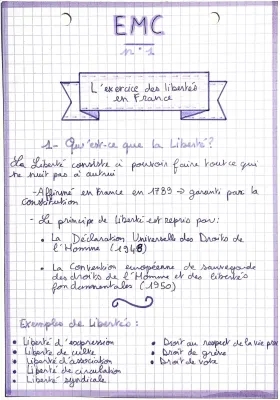 EMC
n°1
L'exercice des libertés
en France
1- Qu'est-ce que la Liberté?
La Liberté consiste à pouvoir faire tout ce qui
ne nuit pas à autrui
-Affirmé en France en 1789 → garanti par la
Constitution
- Le principe de liberté est repris par:
• La Déclaration Universelle des Droits de
l'Homme (1948)
• La Convention européenne de sauvegarde
des droits de l'Homme et des libertés
fondamentales (1950)
Exemples de Libertés :
• Liberté d'expression
• Liberté de culte
• Liberté d'association
• Liberté de circulation
• Liberté syndicale
• Droit au respect de la vie
• Droit de grève
• Droit de vote